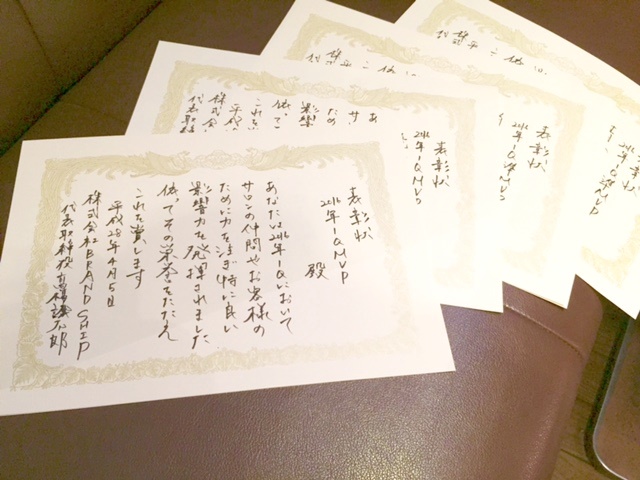 表彰状
2016年1QMVP
殿
あなたは2016年1Qにおいて
サロンの仲間やお客様の
ために力を注ぎ特に良い
影響力を発揮されました
依ってその栄誉をたたえ
これを賞します
平成28年4月5日
株式会社BRAND SHIP
代表取締役
表彰状
2016年1QMVP
あ
サ
ため
影響
依って
これを
平成
株式会
代表取締
表彰状
2016年1QMVP
表彰状
2016年1QMVP